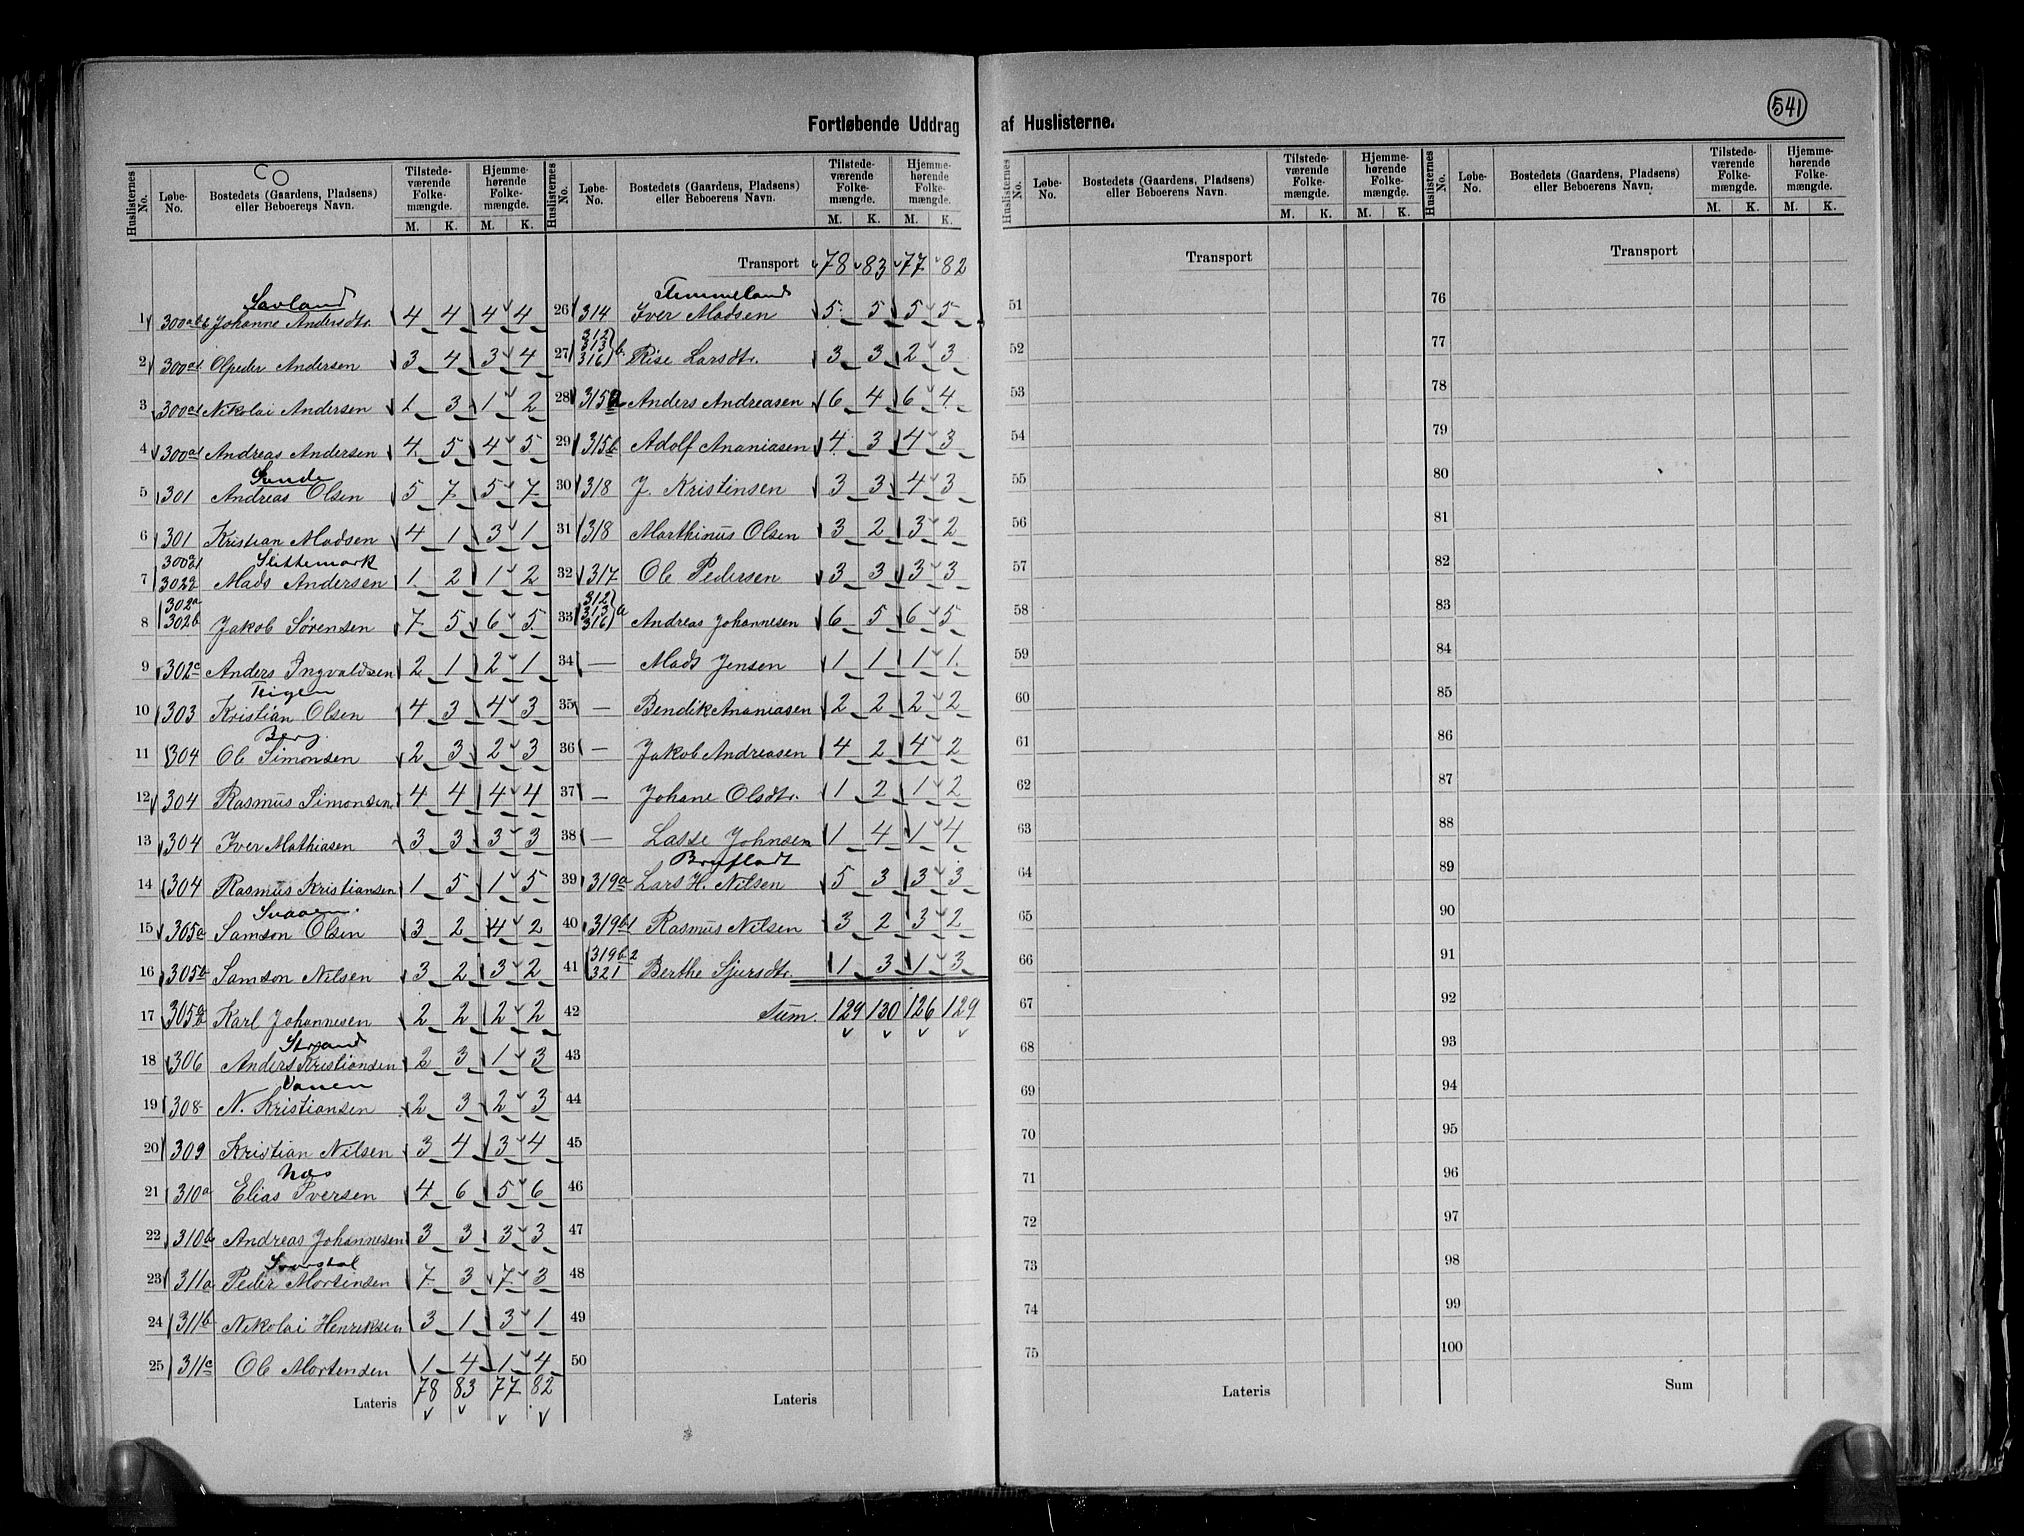 541
Fortløbende Uddrag af Huslisterne.
Huslisternes No. Løbe-No. Bostedets (Gaardens, Pladsens) eller Beboerens Navn. Tilstedeværende Folkemængde. M. K. Hjemmehørende Folkemængde. M. K.
Savland
1 300 Johanne Andersdtr. 4 4 4 4
2 300a1 Olpeder Andersen 3 4 3 4
3 300a1 Nikolai Andersen 1 3 1 2
4 300a1 Andreas Andersen 4 5 4 5
Sunde
5 301 Andreas Olsen 5 7 5 7
6 301 Kristian Madsen 4 1 3 1
Slettemark
7 3022 Mads Andersen 1 2 1 2
302a
8 302b Jakob Sørensen 7 5 6 5
9 302c Anders Ingvaldsen 2 1 2 1
Teigen
10 303 Kristian Olsen 4 3 4 3
Berg.
11 304 Ole Simonsen 2 3 2 3
12 304 Rasmus Simonsen 4 4 4 4
13 304 Iver Mathiasen 3 3 3 3
14 304 Rasmus Kristiansen 1 5 1 5
Svaaen.
15 305a Samson Olsen 3 2 4 2
16 305b Samson Nilsen 3 2 3 2
17 305 Karl Johannesen 2 2 2 2
Strand
18 306 Anders Kristiansen 2 3 1 3
19 308 N. Kristiansen 2 3 2 3
20 309 Kristian Nilsen 3 4 3 4
Næs
21 310a Elias Iversen 4 6 5 6
22 310b Andreas Johannesen 3 3 3 3
23 311a Peder Mortensen 7 3 7 3
24 311b Nikolai Henriksen 3 1 3 1
25 311c Ole Mortensen 1 4 1 4
Lateris 78 83 77 82
Huslisternes No. Løbe-No. Bostedets (Gaardens, Pladsens) eller Beboerens Navn. Tilstedeværende Folkemængde. M. K. Hjemmehørende Folkemængde. M. K.
Transport 78 83 77 82
Timmeland
26 314 Iver Madsen 5 5 5 5
312
313
27 316 b. Rise Larsdtr. 3 3 2 3
28 315a Anders Andreasen 6 4 6 4
29 315b Adolf Ananiasen 4 3 4 3
30 318 J. Kristensen 3 3 4 3
31 318 Marthinus Olsen 3 2 3 2
32 317 Ole Pedersen 3 3 3 3
312
313
33 316 a Andreas Johannesen 6 5 6 5
34 — Mads Jensen 1 1 1 1
35 — Bendik Ananiasen 2 2 2 2
36 — Jakob Andreasen 4 2 4 2
37 — Johane Olsdtr. 1 2 1 2
38 — Lasse Johnsen 1 4 1 4
Bryfladt
39 319a Lars H. Nilsen 5 3 3 3
40 319b1 Rasmus Nilsen 3 2 3 2
319b2
41 321 Berthe Sjursdtr. 1 3 1 3
42 Sum. 129 130 126 129
43
44
45
46
47
48
49
50
Lateris
Huslisternes No. Løbe-No. Bostedets (Gaardens, Pladsens) eller Beboerens Navn. Tilstedeværende Folkemængde. M. K. Hjemmehørende Folkemængde. M. K.
Transport
51
52
53
54
55
56
57
58
59
60
61
62
63
64
65
66
67
68
69
70
71
72
73
74
75
Lateris
Huslisternes No. Løbe-No. Bostedets (Gaardens, Pladsens) eller Beboerens Navn. Tilstedeværende Folkemængde. M. K. Hjemmehørende Folkemængde. M. K.
Transport
76
77
78
79
80
81
82
83
84
85
86
87
88
89
90
91
92
93
94
95
96
97
98
99
100
Sum